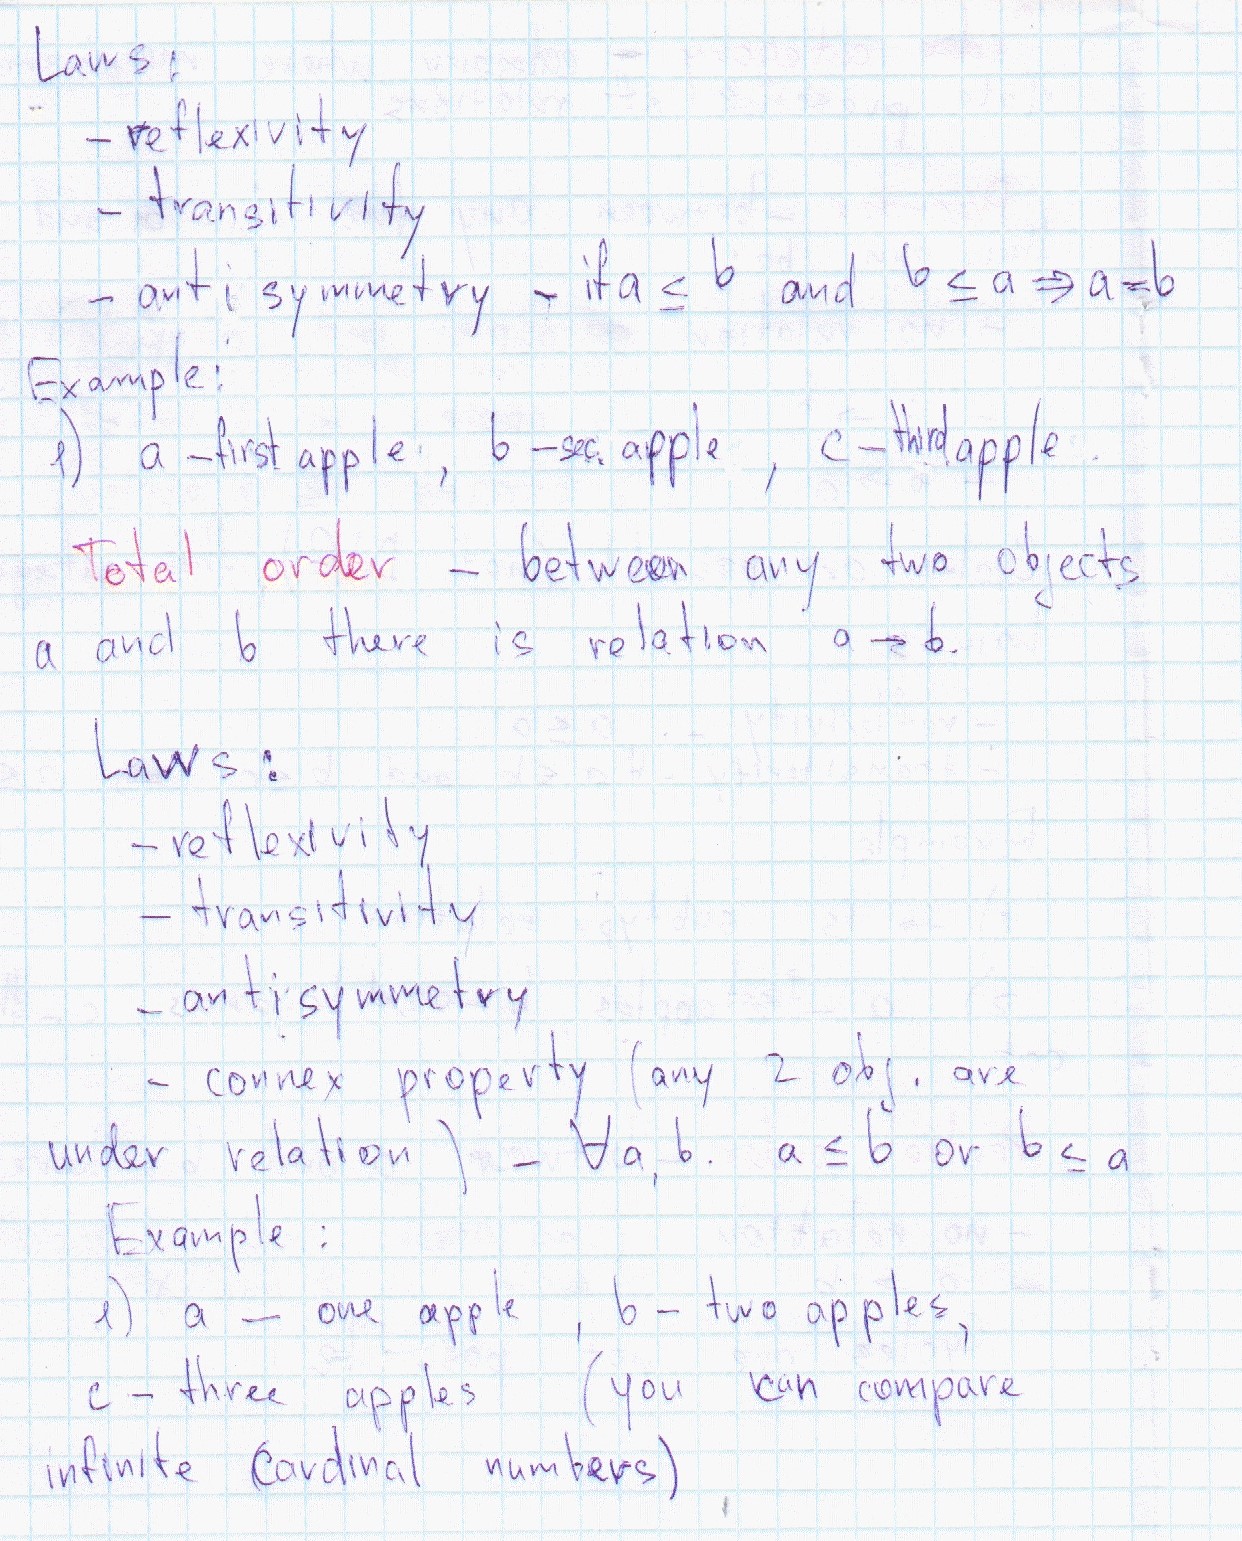 Laws:
- reflexivity
- transitivity
- antisymmetry - if a ≤ b and b ≤ a ⇒ a = b
Example:
1) a - first apple, b - sec. apple, c - third apple.
Total order - between any two objects
a and b there is relation a → b.
Laws:
- reflexivity
- transitivity
- antisymmetry
- connex property (any 2 obj. are
under relation) - ∀a, b. a ≤ b or b ≤ a
Example:
1) a - one apple, b - two apples,
c - three apples (you can compare
infinite cardinal numbers)